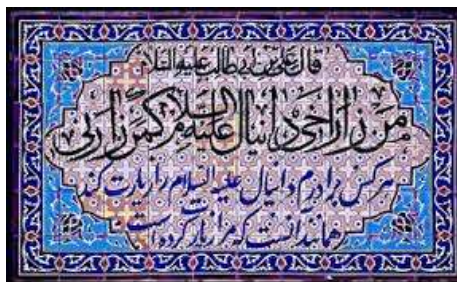 قال علی بن ابیطالب علیه السلام
من زار اخی دانیال علیه السلام کمن زارنی
هر کس برادرم دانیال علیه السلام را زیارت کند
همانند آنست که مرا زیارت کرده است